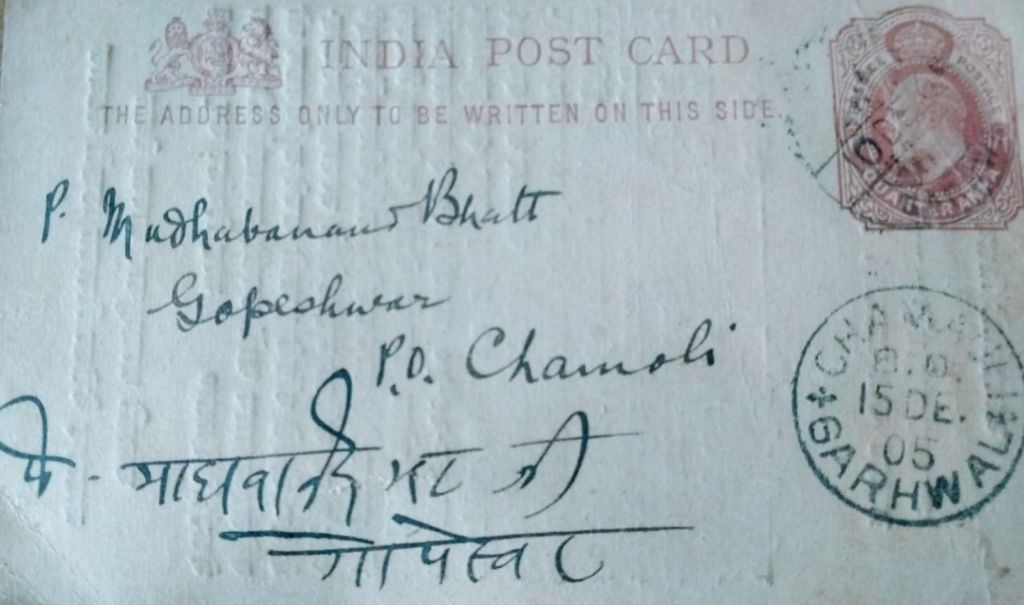 INDIA POST CARD
THE ADDRESS ONLY TO BE WRITTEN ON THIS SIDE.
P. Madhabanand Bhatt
Gopeshwar
P.O. Chamoli
CHAMOLI
B.O.
15 DE.
05
GARHWAL
पं - माधवानंद भट जी
गोपेस्वर